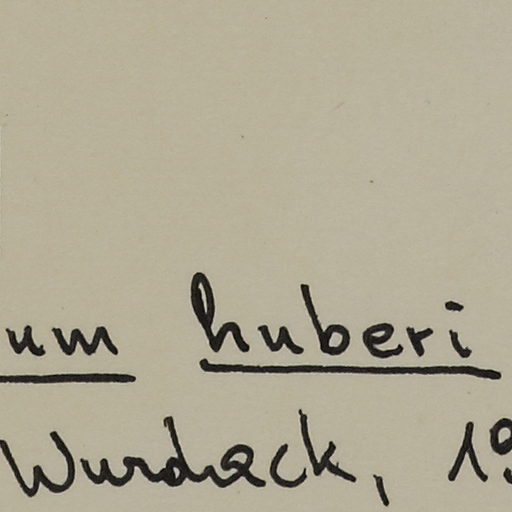 um huberi
Wurdack, 19